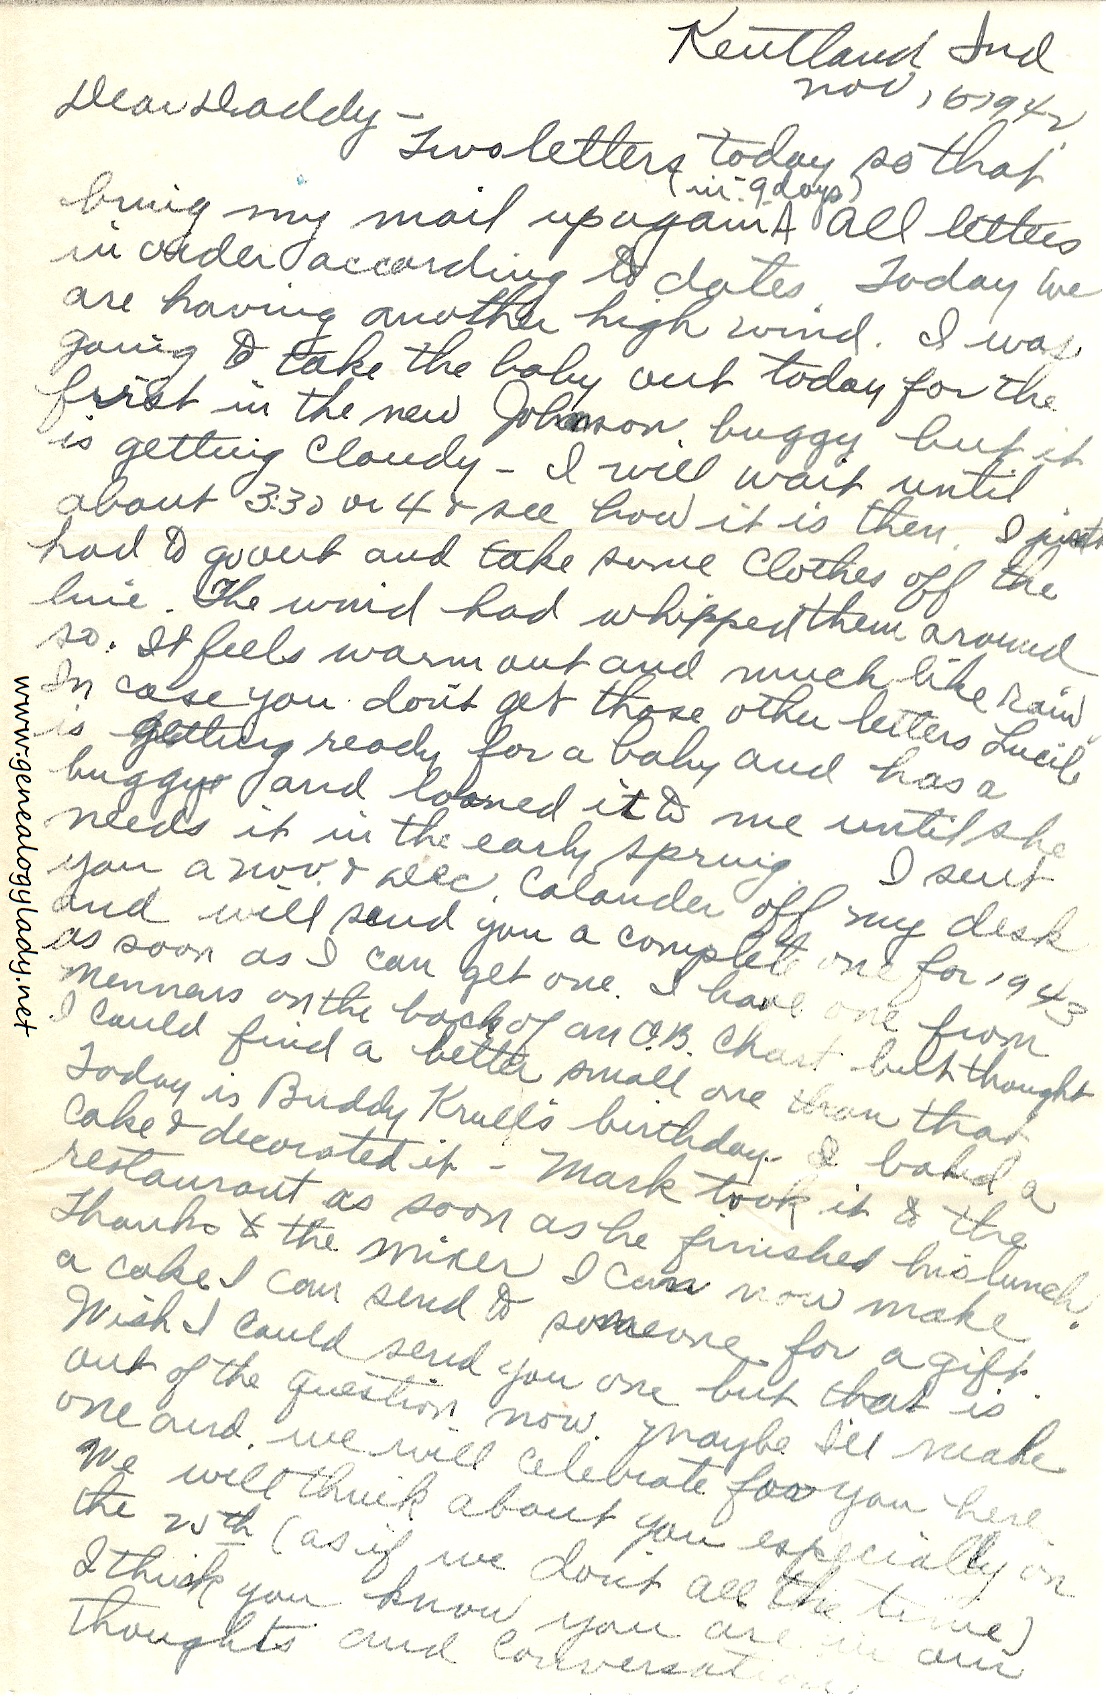 Kentland Ind
Nov, 16, 1942
Dear Daddy -
Two letters today so that
(in 9 days)
bring my mail up again. All letters
in order according to dates. Today we
are having another high wind. I was
going to take the baby out today for the
first in the new Johnson buggy but it
is getting cloudy - I will wait until
about 3:30 or 4 & see how it is then. I just
had to go out and take some clothes off the
line. The wind had whipped them around
so. It feels warm out and much like rain.
In case you don't get those other letters Lucile
is getting ready for a baby and has a
buggy and loaned it to me until she
needs it in the early spring. I sent
you a Nov. & Dec. Calander off my desk
and will send you a complete one for 1943
as soon as I can get one. I have one from
Mennens on the back of an O.B. Chart but thought
I could find a better small one than that
Today is Buddy Krull's birthday. I baked a
cake & decorated it - Mark took it to the
restaurant as soon as he finished his lunch.
Thanks to the mixer I can now make
a cake I can send to someone for a gift.
Wish I could send you one but that is
out of the question now. Maybe I'll make
one and we will celebrate for you here.
We will think about you especially on
the 25th (as if we don't all the time)
I think you know you are in our
thoughts and conversation
www.genealogylady.net